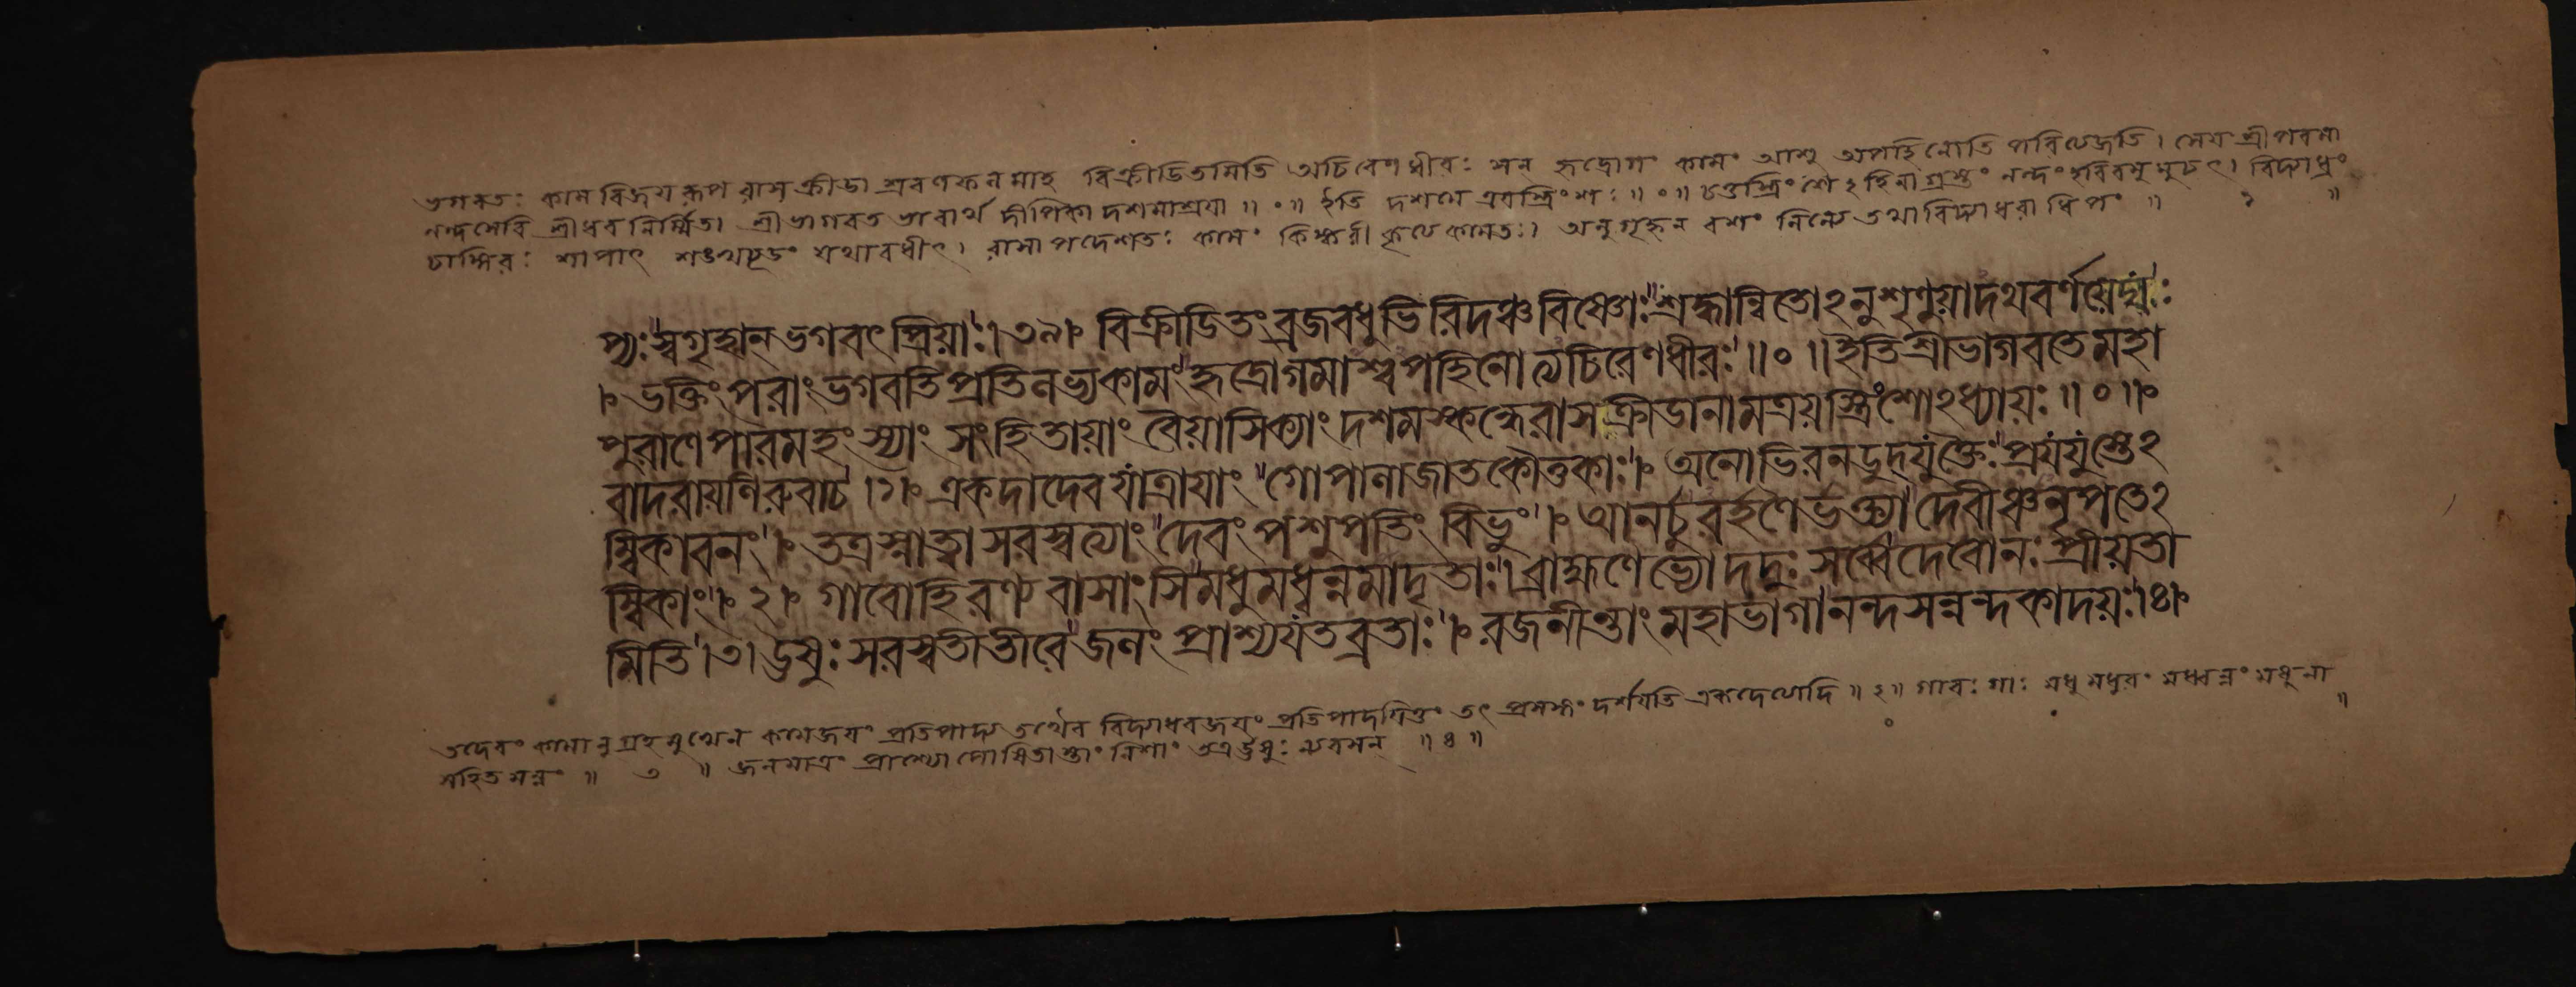 ভগবতঃ কামবিজয়রূপ রাসক্রীডা শ্রবণফলমাহ বিক্রীডিতমিতি অচিরেণ ধীরঃ সন হৃদ্রোগং কামং আশু অপহিনোতি পরিত্যজতি। সেয়ং শ্রীপরমা
নন্দসেবি শ্রীধরনির্ম্মিতা। শ্রীভাগবত ভাবার্থ দীপিকা দশমাশ্রয়া॥ ০॥ ইতি দশমে ত্রয়স্ত্রিংশঃ॥ ০॥ চতুস্ত্রিংশেঽহিনা গ্রস্তং নন্দং হরিরমূমুচৎ। বিদ্যাধ্রং
চাঙ্গিরঃ শাপাৎ শঙখচূডং যথাবধীৎ। রাসাপদেশতঃ কামং কিঙ্করী কৃত্য কামতঃ। অনুগৃহ্নন বশং নিন্যে তথা বিদ্যাধরাধিপং॥ ১ ॥
প্যঃ স্বগৃহান ভগবৎপ্রিয়াঃ।৩৯। বিক্রীডিতং ব্রজবধুভিরিদঞ্চবিষ্ণোঃ শ্রদ্ধান্বিতোঽনুশৃণুয়াদথবর্ণয়েদ্যঃ
। ভক্তিং পরাং ভগবতি প্রতিলভ্যকামং হৃদ্রোগমাশ্বপহিনোত্যচিরেণধীরঃ॥০॥ইতি শ্রীভাগবতে মহা
পুরাণে পারমহংস্যাং সংহিতায়াং বৈয়াসিক্যাং দশমস্কন্ধে রাসক্রীডানামত্রয়স্ত্রিংশোঽধ্যায়ঃ॥০॥
বাদরায়ণিরুবাচ।১। একদাদেবযাত্রায়াং গোপানাজাতকৌতুকাঃ। অনোভিরনডুদ্যুক্তৈঃ প্রযযুস্তেঽ
ম্বিকাবনং। তত্রস্নাত্বা সরস্বত্যাং দেবং পশুপতিং বিভুং। আনর্চুরর্হণৈর্ভক্ত্যা দেবীঞ্চনৃপতেঽ
ম্বিকাং। ২। গাবোহিরণ্যং বাসাংসি মধুমধ্বন্নমাদৃতাঃ। ব্রাহ্মণেভ্যোদদুঃ সর্ব্বেদেবোনঃ প্রীয়তা
মিতি।৩। ঊষুঃ সরস্বতীতীরে জলং প্রাশ্যযতব্রতাঃ। রজনীন্তাং মহাভাগানন্দসন্নন্দকাদয়ঃ।৪।
তদেবং কামানুগ্রহমুখেন কামজয়ং প্রতিপাদ্য তথৈব বিদ্যাধরজয়ং প্রতিপাদয়িতুং তৎ প্রসঙ্গং দর্শয়তি একদেত্যাদি॥ ২॥ গাবঃ গাঃ মধু মধুরং মধ্বন্নং মধুনা
সহিতমন্নং॥ ৩ ॥ জলমাত্রং প্রাশ্য উপোষিতাস্তাং নিশাং তত্র ঊষুঃ ন্যবসন্ ॥ ৪ ॥